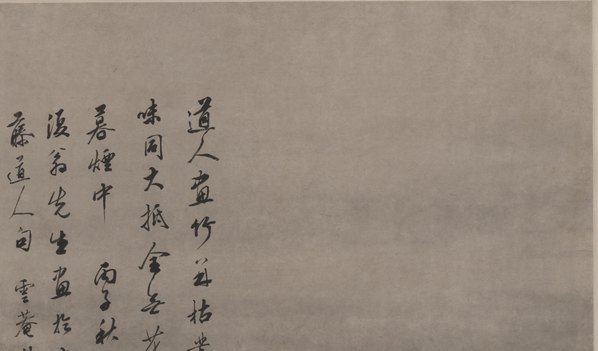 道人画竹并枯
味同大抵全無
暮煙中 丙子秋
復翁先生画於
藤道人句 雲菴